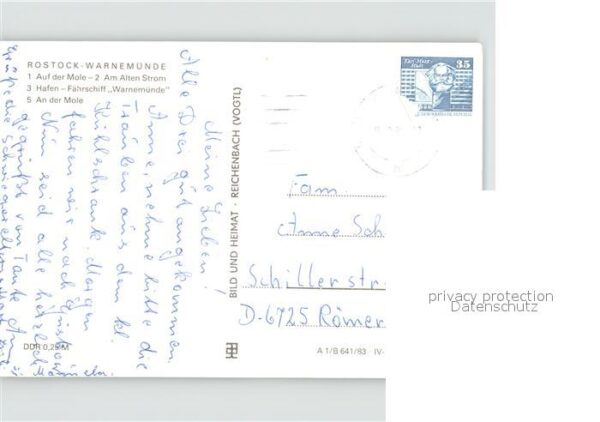 ROSTOCK-WARNEMÜNDE
1 Auf der Mole – 2 Am Alten Strom
3 Hafen – Fährschiff „Warnemünde“
5 An der Mole
Meine Lieben!
Alle Drei gut angekommen.
Anne, nehme bitte die
Trauben aus dem kl.
Kühlschrank. Morgen
fahren wir nach Güstrow
Nun seid alle herzlich
gegrüßt von Tante
Grüße die Schwiegereltern
DDR 0,25 M
BILD UND HEIMAT · REICHENBACH (VOGTL)
A 1/B 641/83 IV-
Karl-Marx-
35
Fam.
Anne Sch
Schillerstr
D-6725 Römer
privacy protection
Datenschutz